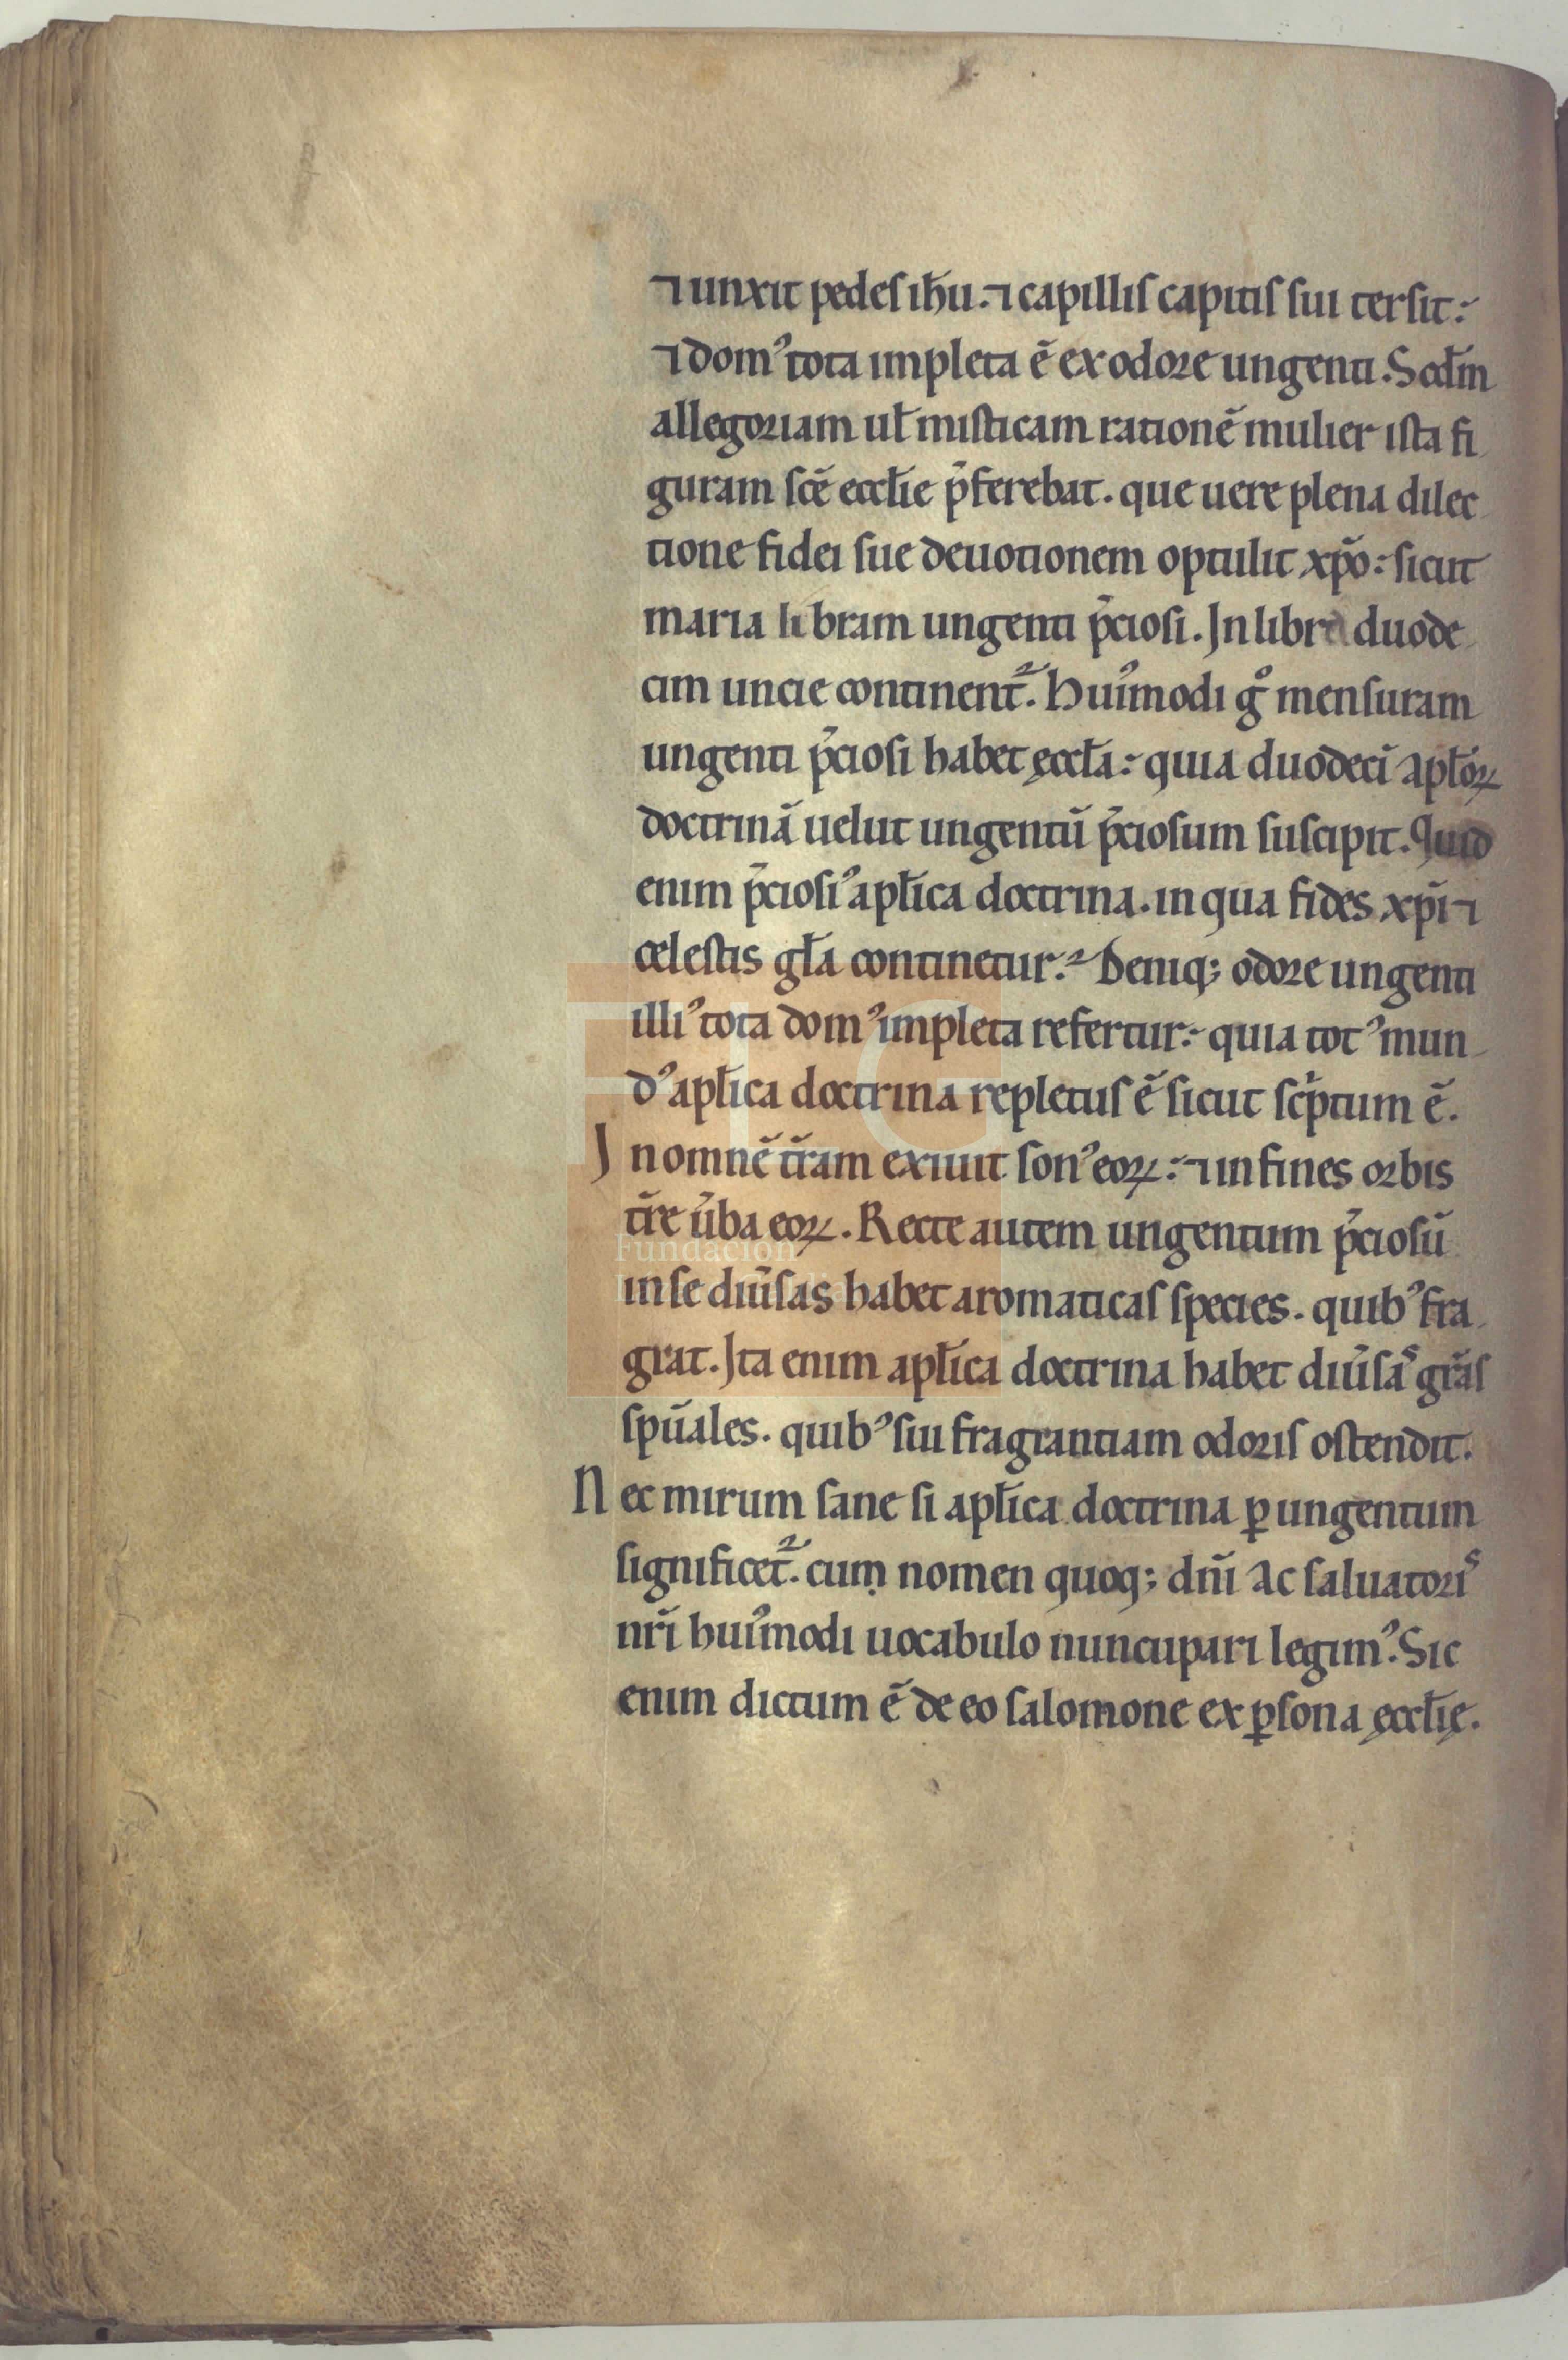 ⁊ unxit pedes ih̅u. ⁊ capillis capitis sui tersit:
⁊ domꝰ tota impleta ē ex odore ungenti. Scd̅m
allegoriam ul̅ misticam rationē mulier ista fi
guram sc̅e eccl̅ie p̅ferebat. que uere plena dilec
tione fidei sue deuotionem optulit xp̅o: sicut
maria libram ungenti p̅ciosi. In libra duode
cim uncie continent᷑. Huiꝰmodi gͦ mensuram
ungenti p̅ciosi habet ęccl̅a: quia duodeci̅ apl̅oꝝ
doctrinā uelut ungentū p̅ciosum suscipit. Quid
enim p̅ciosiꝰ apl̅ica doctrina. in qua fides xp̅i ⁊
celestis gl̅a continetur? Deniq; odore ungenti
illiꝰ tota domꝰ impleta refertur: quia totꝰ mun
dꝰ apl̅ica doctrina repletus ē sicut sc̅ptum ē.
In omnē tr̅am exiuit sonꝰ eoꝝ: ⁊ in fines orbis
tr̅e u̅ba eoꝝ. Recte autem ungentum p̅ciosū
in se diu̅sas habet aromaticas species. quibꝰ fra
grat. Ita enim apl̅ica doctrina habet diu̅sas gr̅as
spu̅ales. quibꝰ sui fragrantiam odoris ostendit.
Nec mirum sane si apl̅ica doctrina ꝑ ungentum
significet᷑. cum nomen quoq; dn̅i ac saluatoris
nr̅i huiꝰmodi uocabulo nuncupari legimꝰ. Sic
enim dictum ē de eo salomone ex ꝑsona ęccl̅ię.
Fundación